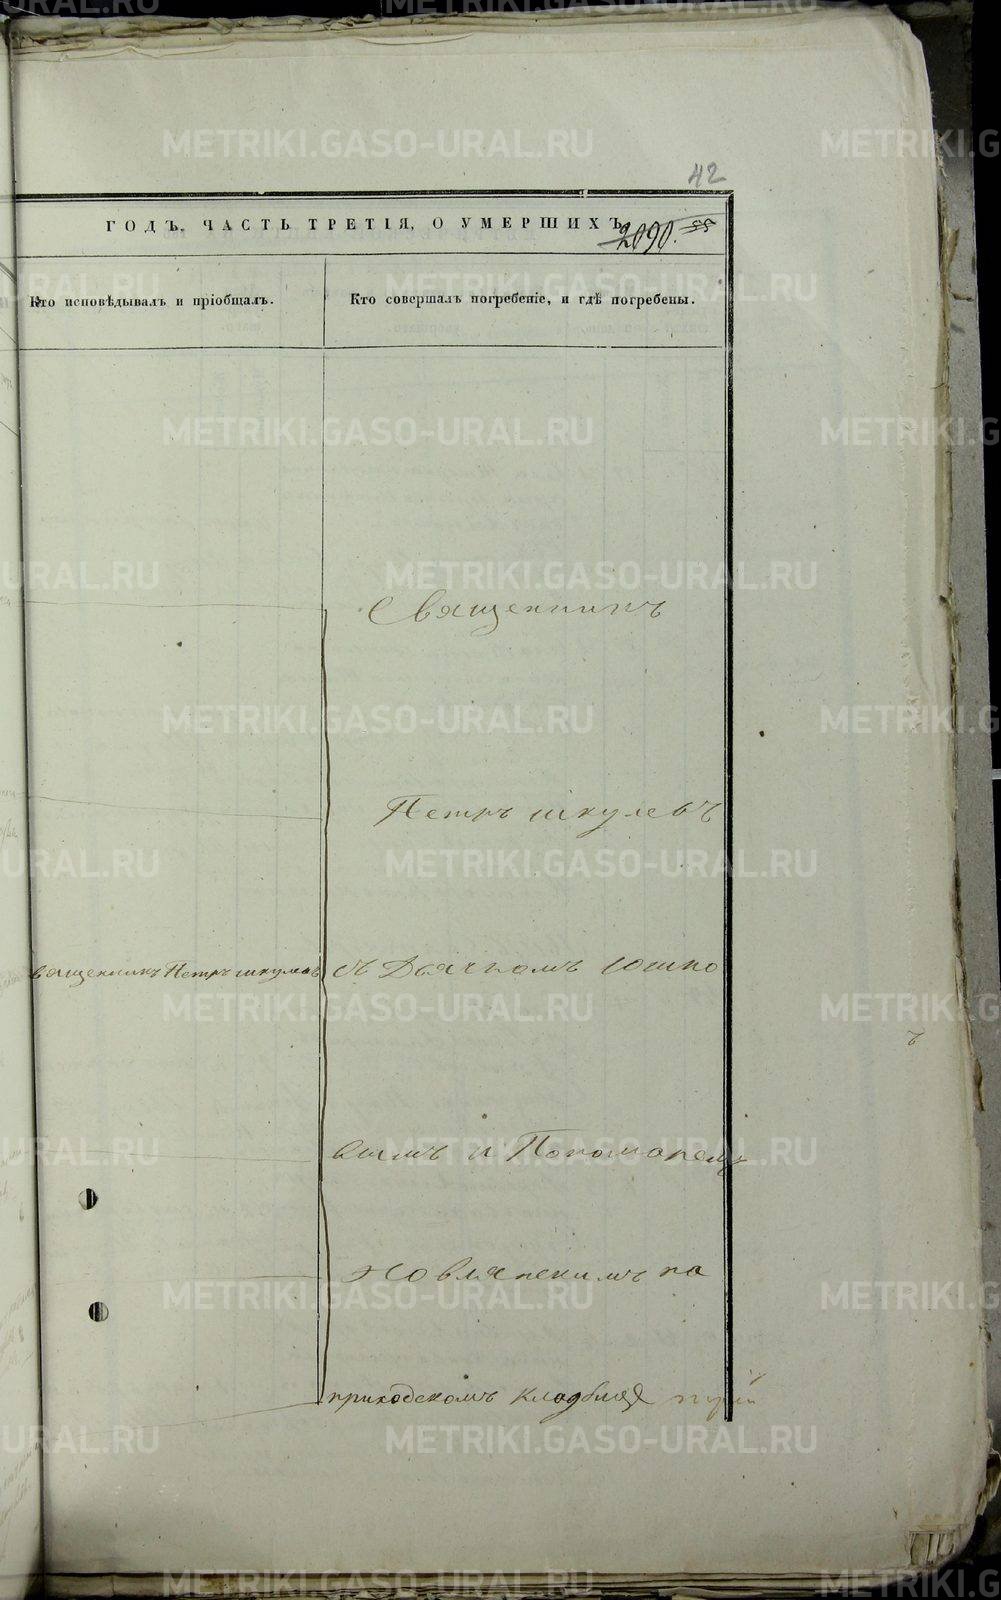 42
ГОДЪ, ЧАСТЬ ТРЕТІЯ, О УМЕРШИХЪ.
2090. 55
Кто исповѣдывалъ и пріобщалъ.
Кто совершалъ погребеніе, и гдѣ погребены.
Священникъ
Петръ шкулевъ
вященникъ Петръ шкулевъ
съ Дьячкомъ Юшко
вымъ и Пономаремъ
Ховлянскимъ на
приходскомъ кладбищѣ
METRIKI.GASO-URAL.RU